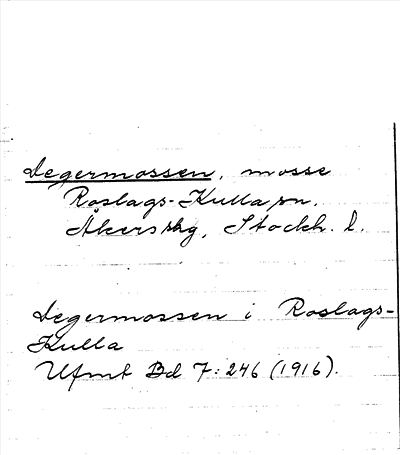 Degermossen, mosse
Roslags-Kulla sn.
Åkers skg, Stockh. l.
Degermossen i Roslags-
Kulla
Ufmt Bd 7: 246 (1916).